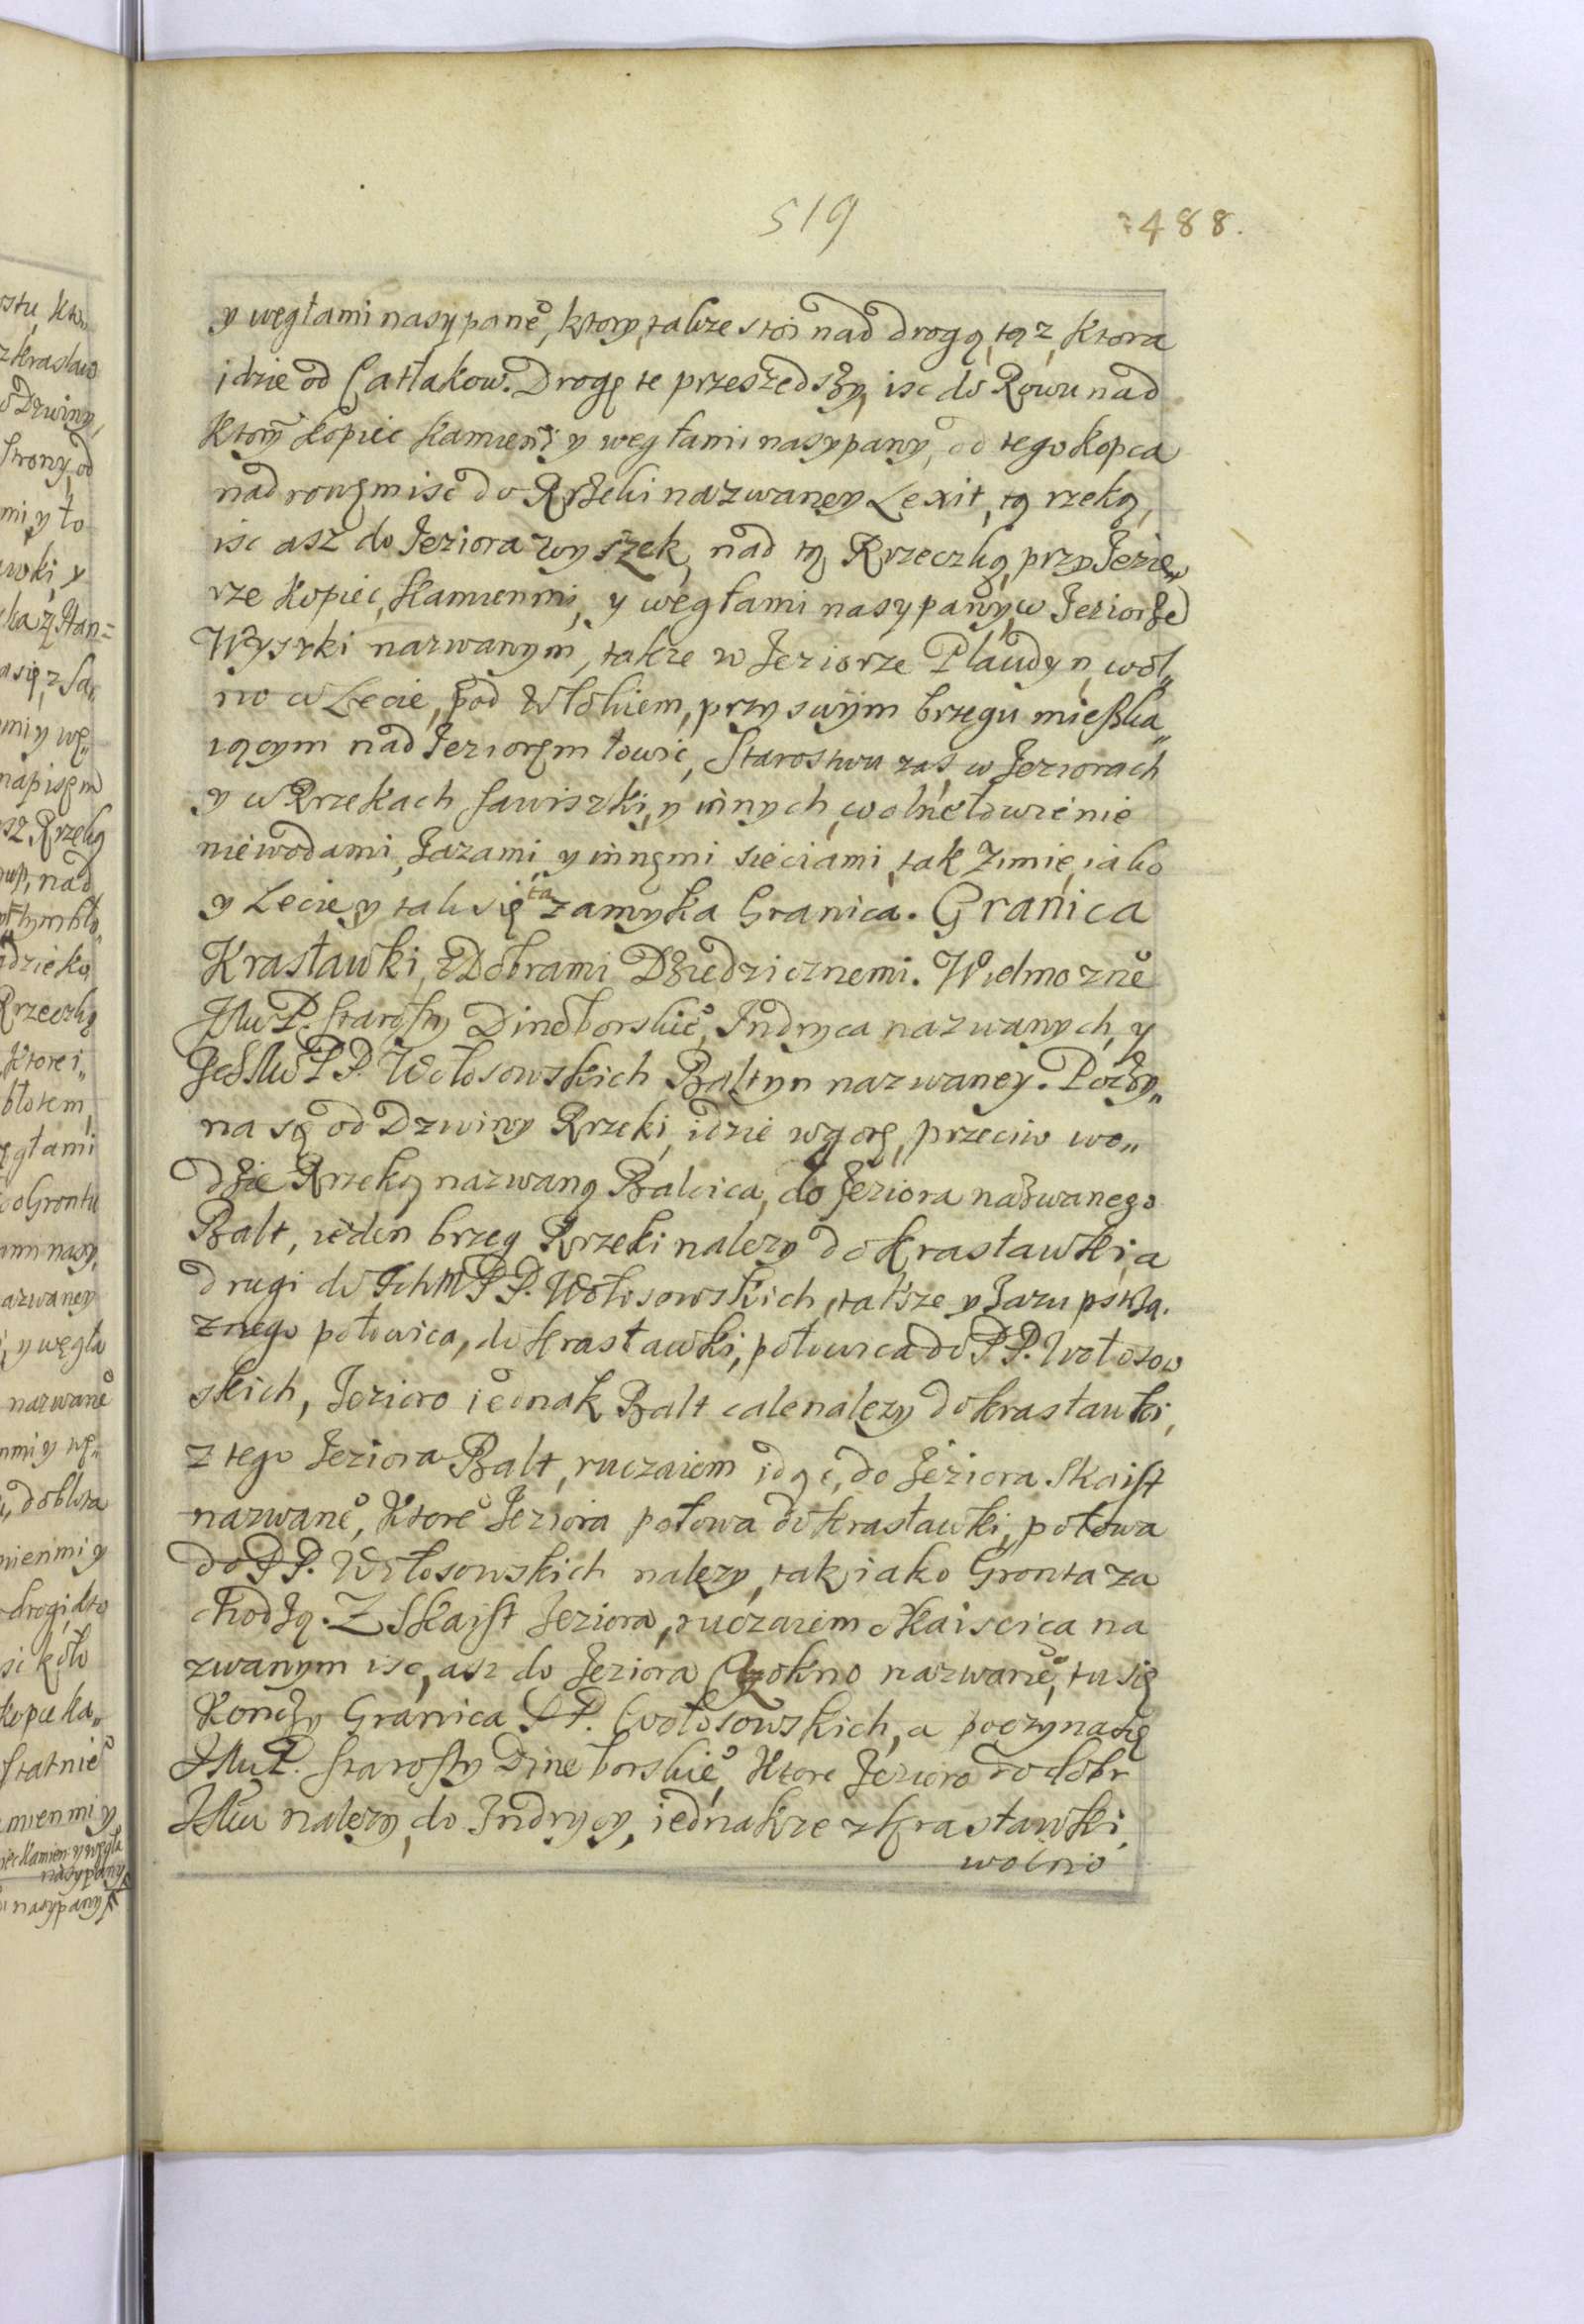 519
488.
y węgłami nasypane͡o, ktory, takze stoi nad drogą, tąz, ktora
idzie od Catlakow. Drogę te przeszedszy, isc do Rowu nad
Ktorÿ kopiec kamieni y węgłami nasypany, od tego kopca
nad rowęm isc do Rrzeki nazwaney Lexit, tą rzeką,
isc asz do Jeziora Wyszek, nad tą Rrzeczką, przy Jezio„
rze Kopiec, Kamienmi, y węgłami nasypany, w Jeziorze
Wyszki nazwanym, takze w Jeziorze Plaudyn, wol„
no w Lecie, pod Włokiem, przy swym brzegu mięszka„
iącym nad Jeziorem łowić, Starostwu zaś w Jeziorach
y w Rrzekach Sawiszki, y innych, wolne łowienie
niewodami, Jazami, y innęmi sieciami, tak Zimie, iako
y Lecie, y tak się ta zamyka Granica. Granica
Krasławki, z Dobrami Dziedzicznemi. Wielmozne͡o
JMwP. Starosty Dineborskie͡o, Indryca nazwanych, y
JchMwPP. Wołosowskich Baltyn nazwaney. Poczy„
na się od Dzwiny Rrzeki, idzie wgorę, przeciw wo„
dzie Rrzeką nazwaną Balcica, do Jeziora nazwanego
Balt, ieden brzeg Rrzeki nalezy do Krasławki, a
drugi do JchMPP. Wołosowskich, takze y Jazu
znego połowica, do Krasławki, połowica do PP. Wołosow
skich, Jezioro iednak Balt cale nalezy do Krasławki,
z tego Jeziora Balt, ruczaiem idąc, do Jeziora Skaist
nazwane͡o, Ktore͡o Jeziora połowa do Krasławki, połowa
do PP. Wołosowskich nalezy, tak iako Gronta za
chodzą. Z Skaist Jeziora, ruczaiem Skaiscica na
zwanym isc, asz do Jeziora Czokno nazwane͡o, tu się
Konczy Granica PP. Wołosowskich, a poczyna się
JMwP. Starosty Dineborskie͡o, Ktore Jezioro do dobr
JMw nalezy, do Indrycy, iednakze z Krasławki,
wolno